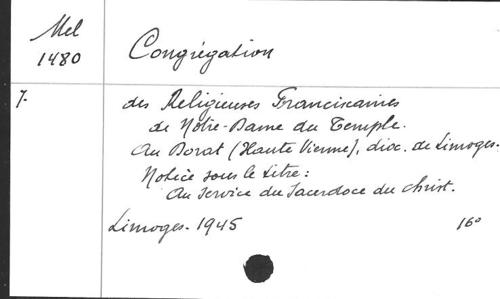 Mel
1480
Congrégation
7.
des Religieuses Franciscaines
de Notre-Dame du Temple.
Au Dorat (Haute Vienne), dioc. de Limoges.
Notice sous le titre:
Au service du Sacerdoce du Christ.
Limoges. 1945 16°